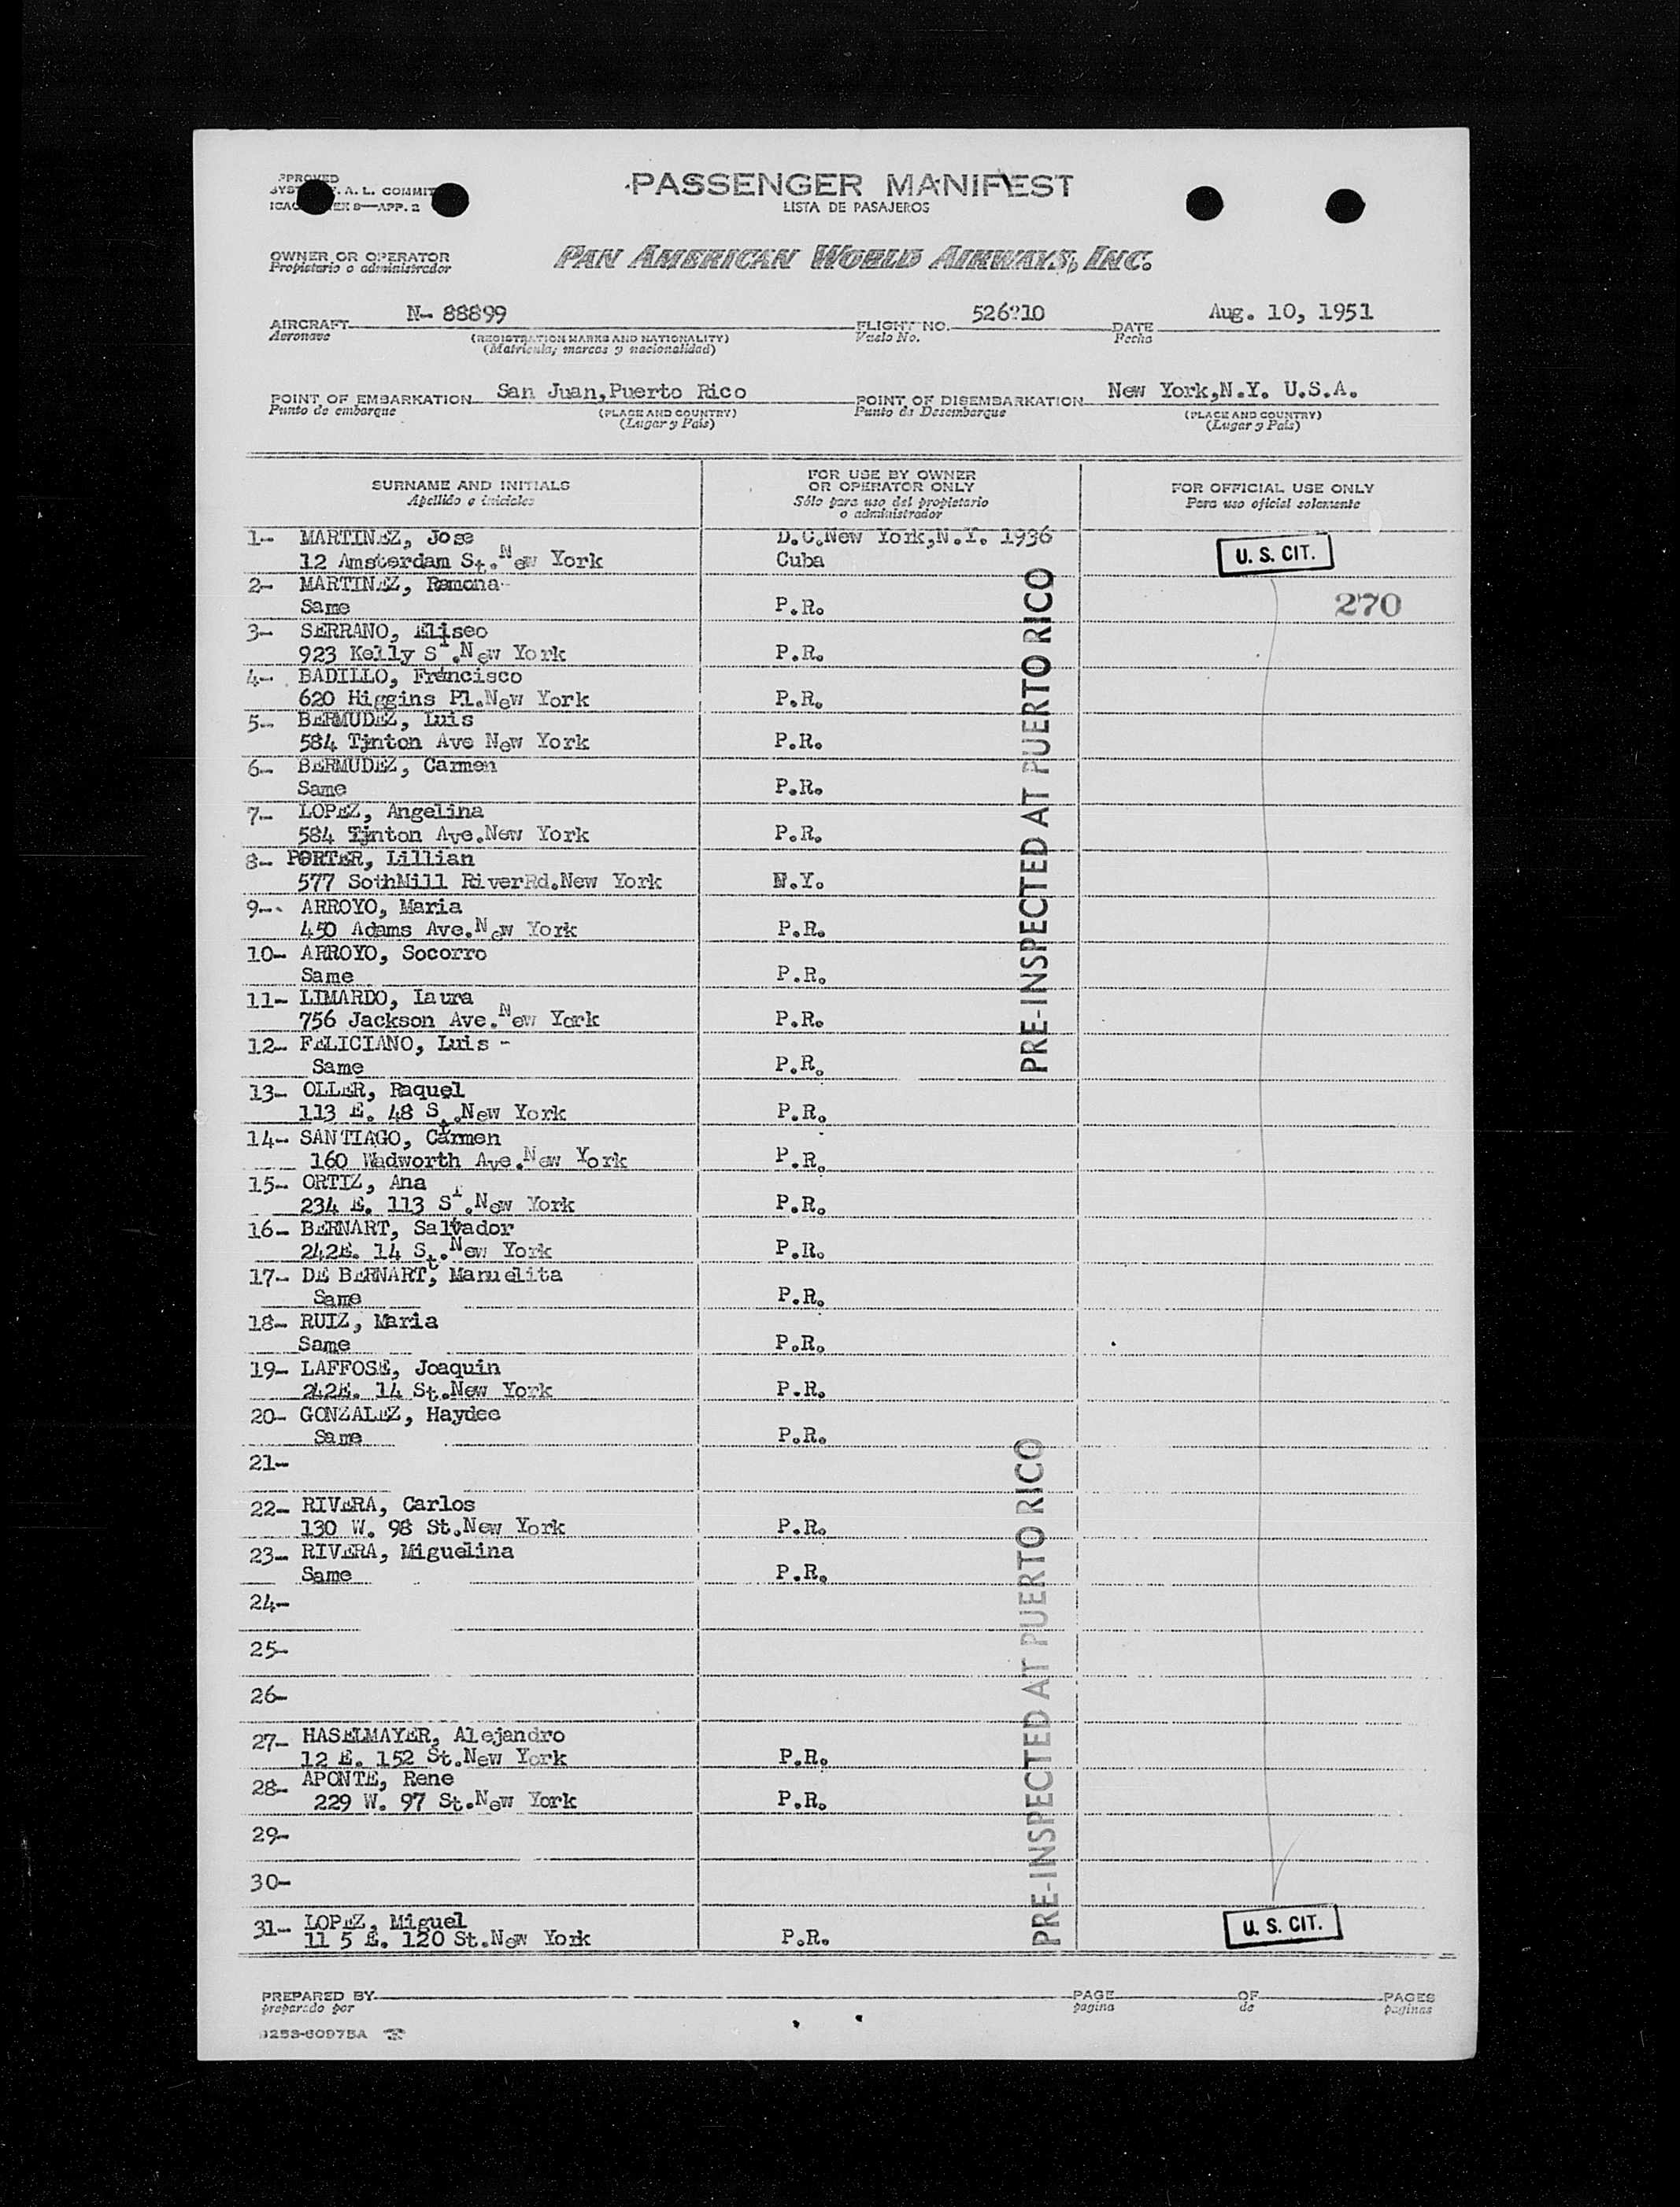 APPROVED
A. L. COMMIT
APP. 2
PASSENGER MANIFEST
LISTA DE PASAJEROS
OWNER OR OPERATOR
Propietario o administrador
PAN AMERICAN WORLD AIRWAYS, INC.
AIRCRAFT N- 88899 FLIGHT NO. 526?10 DATE Aug. 10, 1951
Aeronave (REGISTRATION MARKS AND NATIONALITY) Vuelo No. Fecha
(Matricula; marcas y nacionalidad)
POINT OF EMBARKATION San Juan,Puerto Rico POINT OF DISEMBARKATION New York,N.Y. U.S.A.
Punto de embarque (PLACE AND COUNTRY) Punto de Desembarque (PLACE AND COUNTRY)
(Lugar y País) (Lugar y País)
SURNAME AND INITIALS FOR USE BY OWNER OR OPERATOR ONLY FOR OFFICIAL USE ONLY
Apellido e iniciales Sólo para uso del propietario o administrador Para uso oficial solamente
1- MARTINEZ, Jose D.C.New York,N.Y. 1936
12 Amsterdam St.New York Cuba U. S. CIT.
2- MARTINEZ, Ramona
Same P.R. 270
3- SERRANO, Eliseo
923 Kelly St.New York P.R.
4- BADILLO, Francisco
620 Higgins Pl.New York P.R.
5- BERMUDEZ, Luis
584 Tinton Ave New York P.R.
6- BERMUDEZ, Carmen
Same P.R.
7- LOPEZ, Angelina
584 Tinton Ave.New York P.R.
8- PORTER, Lillian
577 SothMill RiverRd.New York N.Y.
9- ARROYO, Maria
450 Adams Ave.New York P.R.
10- ARROYO, Socorro
Same P.R.
11- LIMARDO, Laura
756 Jackson Ave.New York P.R.
12- FELICIANO, Luis -
Same P.R.
13- OLLER, Raquel
113 E. 48 St.New York P.R.
14- SANTIAGO, Carmen
160 Wadworth Ave.New York P.R.
15- ORTIZ, Ana
234 E. 113 St.New York P.R.
16- BERNART, Salvador
242E. 14 St.New York P.R.
17- DE BERNART, Manuelita
Same P.R.
18- RUIZ, Maria
Same P.R.
19- LAFFOSE, Joaquin
242E. 14 St.New York P.R.
20- GONZALEZ, Haydee
Same P.R.
21-
22- RIVERA, Carlos
130 W. 98 St.New York P.R.
23- RIVERA, Miguelina
Same P.R.
24-
25-
26-
27- HASELMAYER, Alejandro
12 E. 152 St.New York P.R.
28- APONTE, Rene
229 W. 97 St.New York P.R.
29-
30-
31- LOPEZ, Miguel
11 5 E. 120 St.New York P.R. U. S. CIT.
PRE-INSPECTED AT PUERTO RICO
PRE-INSPECTED AT PUERTO RICO
PREPARED BY PAGE OF PAGES
preparado por pagina de paginas
9253-60975A